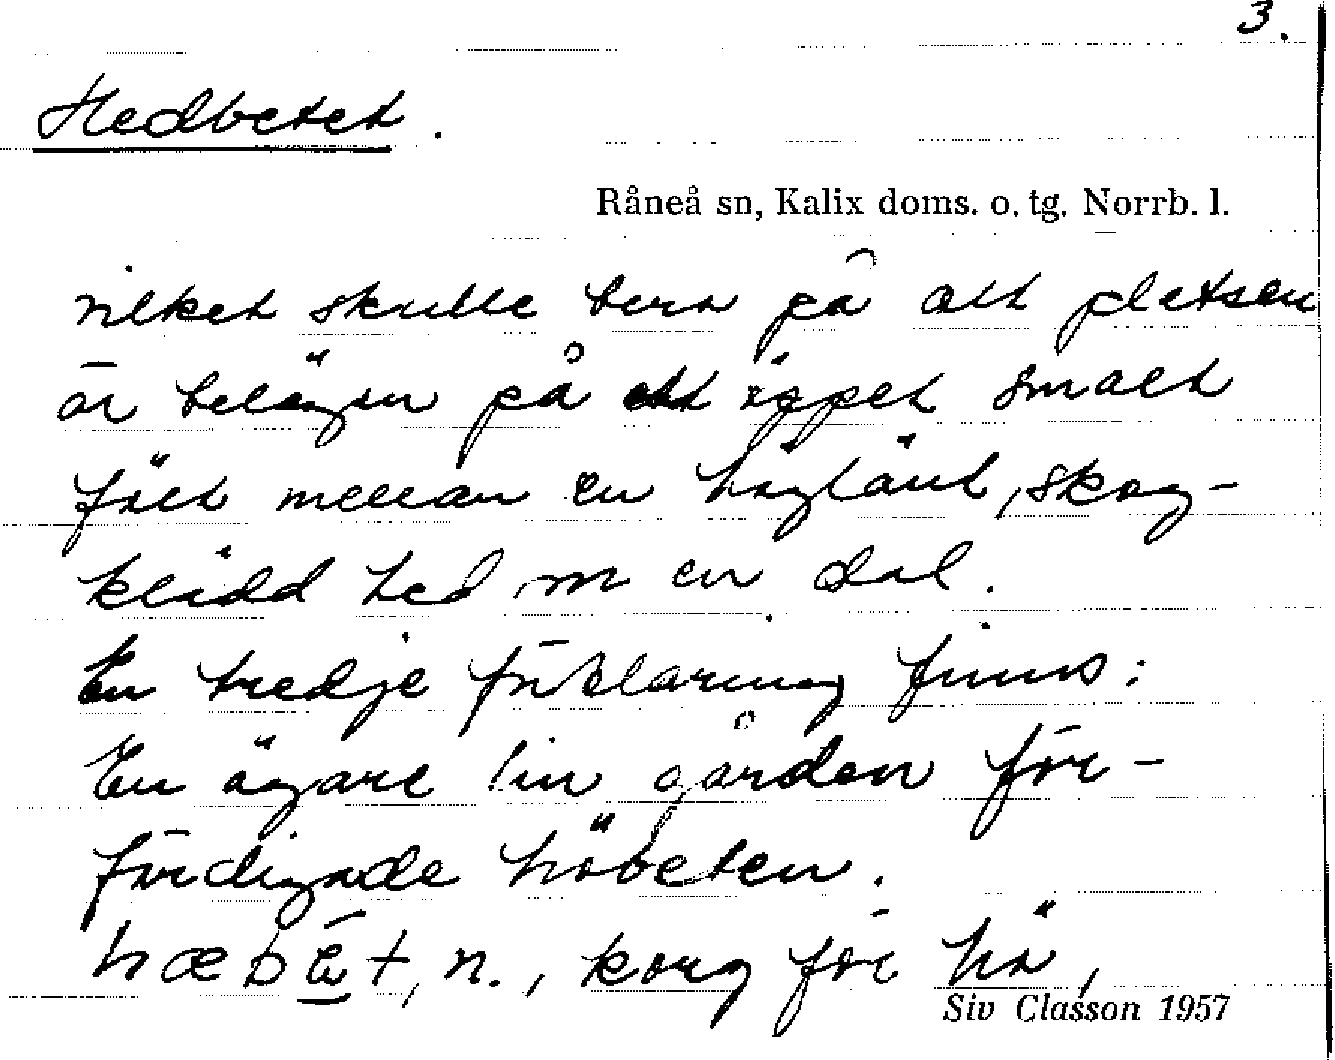 3.
Hedbetet.
Råneå sn, Kalix doms. o. tg. Norrb. l.
vilket skulle bero på att platsen
är belägen på ett öppet smalt
fält mellan en höglänt, skog-
klädd hed o en dal.
En tredje förklaring finns:
En ägare till gården för-
färdigade höbeten.
hæbet, n., korg för hö,
Siv Classon 1957